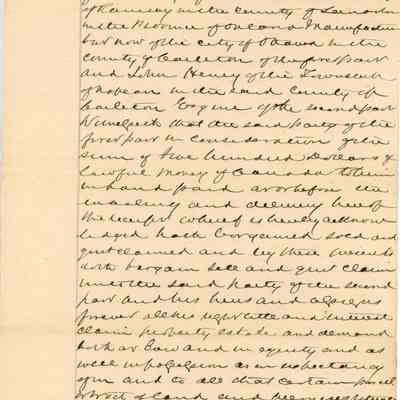 of Ramsay in the County of Lanark
in the Province of Ontario Manufacturer
but now of the city of Ottawa in the
County of Carleton of the first part
and John Henry of the Township
of Nepean in the said County of
Carleton Esquire of the second part
Witnesseth that the said party of the
first part in consideration of the
sum of five hundred Dollars of
lawful money of Canada to him
in hand paid at or before the
ensealing and delivery hereof
the receipt whereof is hereby acknow
ledged hath bargained sold and
quit claimed and by these presents
doth bargain sell and quit claim
unto the said party of the second
part and his heirs and assigns
forever all his right title and interest
claim property estate and demand
both at law and in equity and as
well in possession as in expectancy
of in and to all that certain parcel
or tract of land and premises